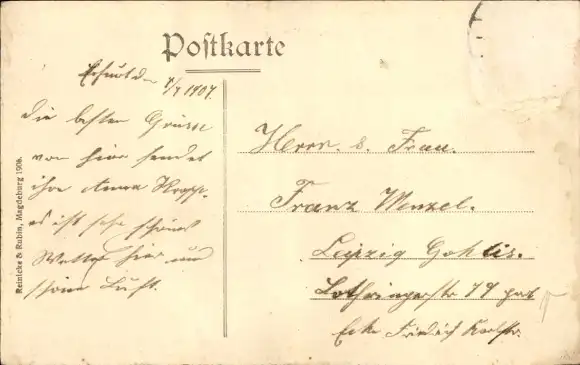 Postkarte
Erfurt den 7/7 1907.
Die besten Grüsse
von hier sendet
ihre Anna
es ist sehr schönes
Wetter hier und
schöne Luft.
Herrn. & Frau.
Franz Menzel.
Leipzig Gohlis.
Lothringerstr 79
Ecke Friedrich Karlstr.
Reinicke & Rubin, Magdeburg 1906.